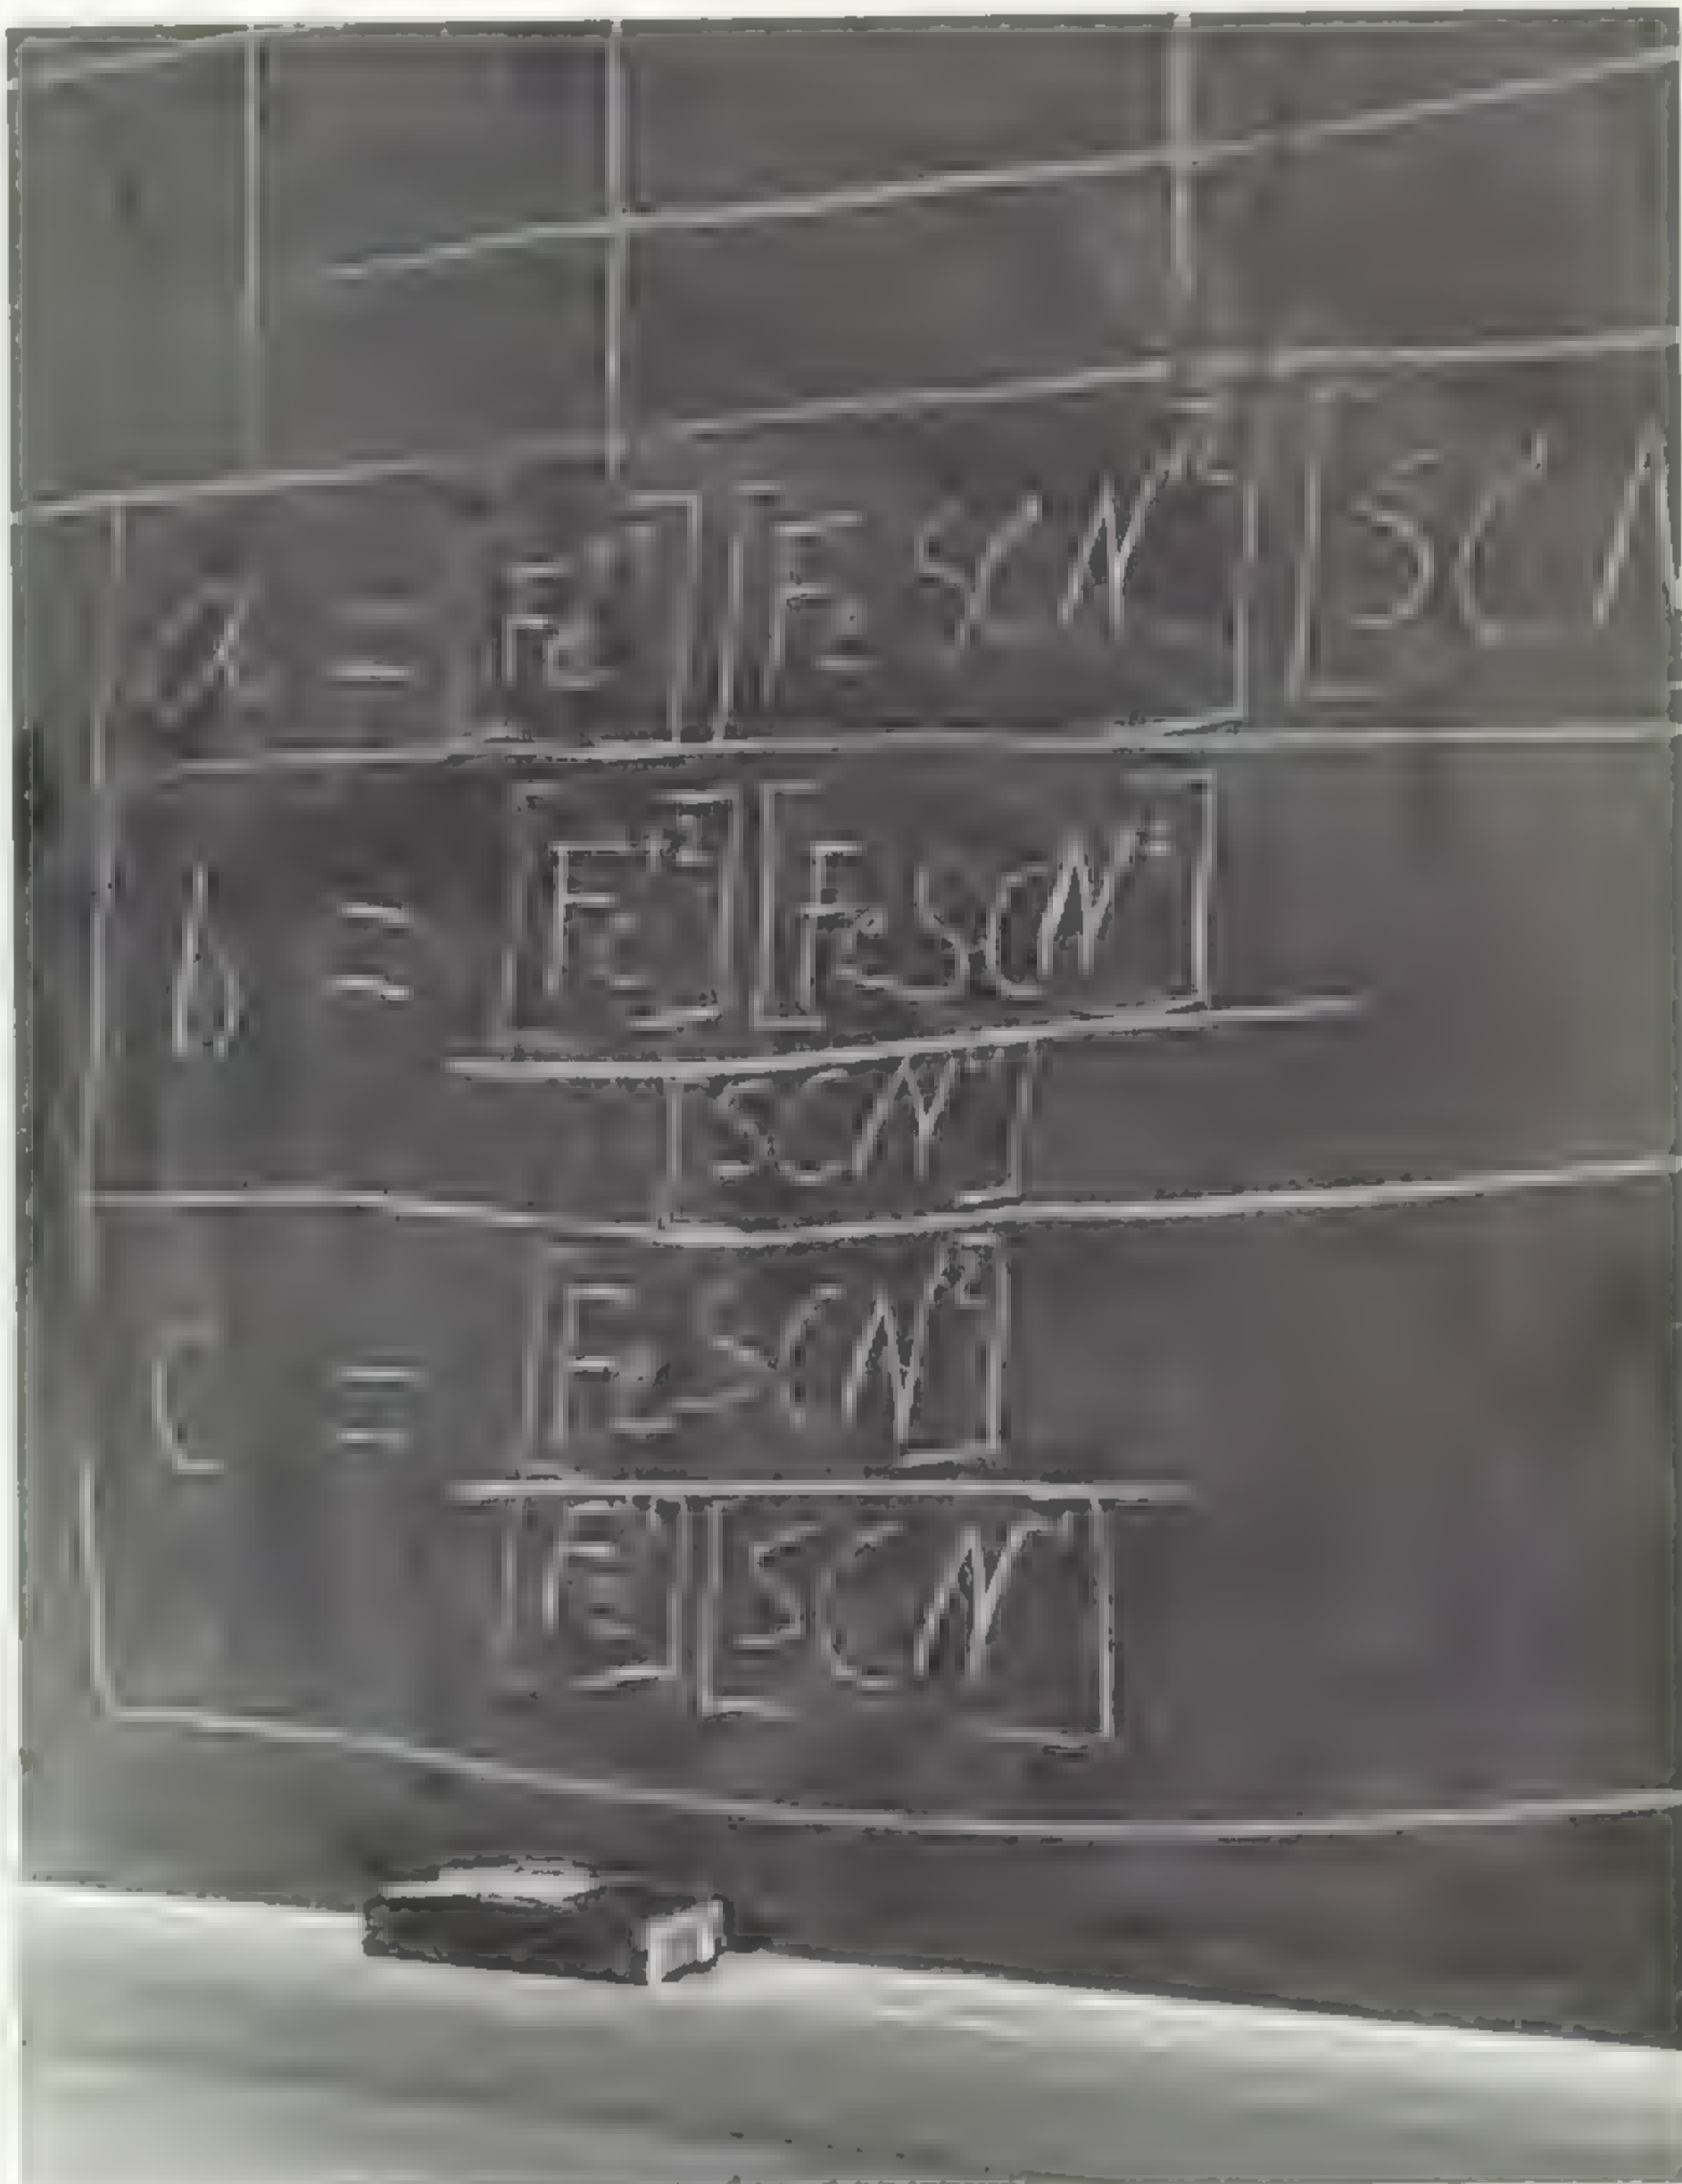 a = Fe] [FeSCN²] [SCN
b = [Fe²] [FeSCN²]
[SCN⁻]
C = [FeSCN²]
[Fe] [SCN⁻]